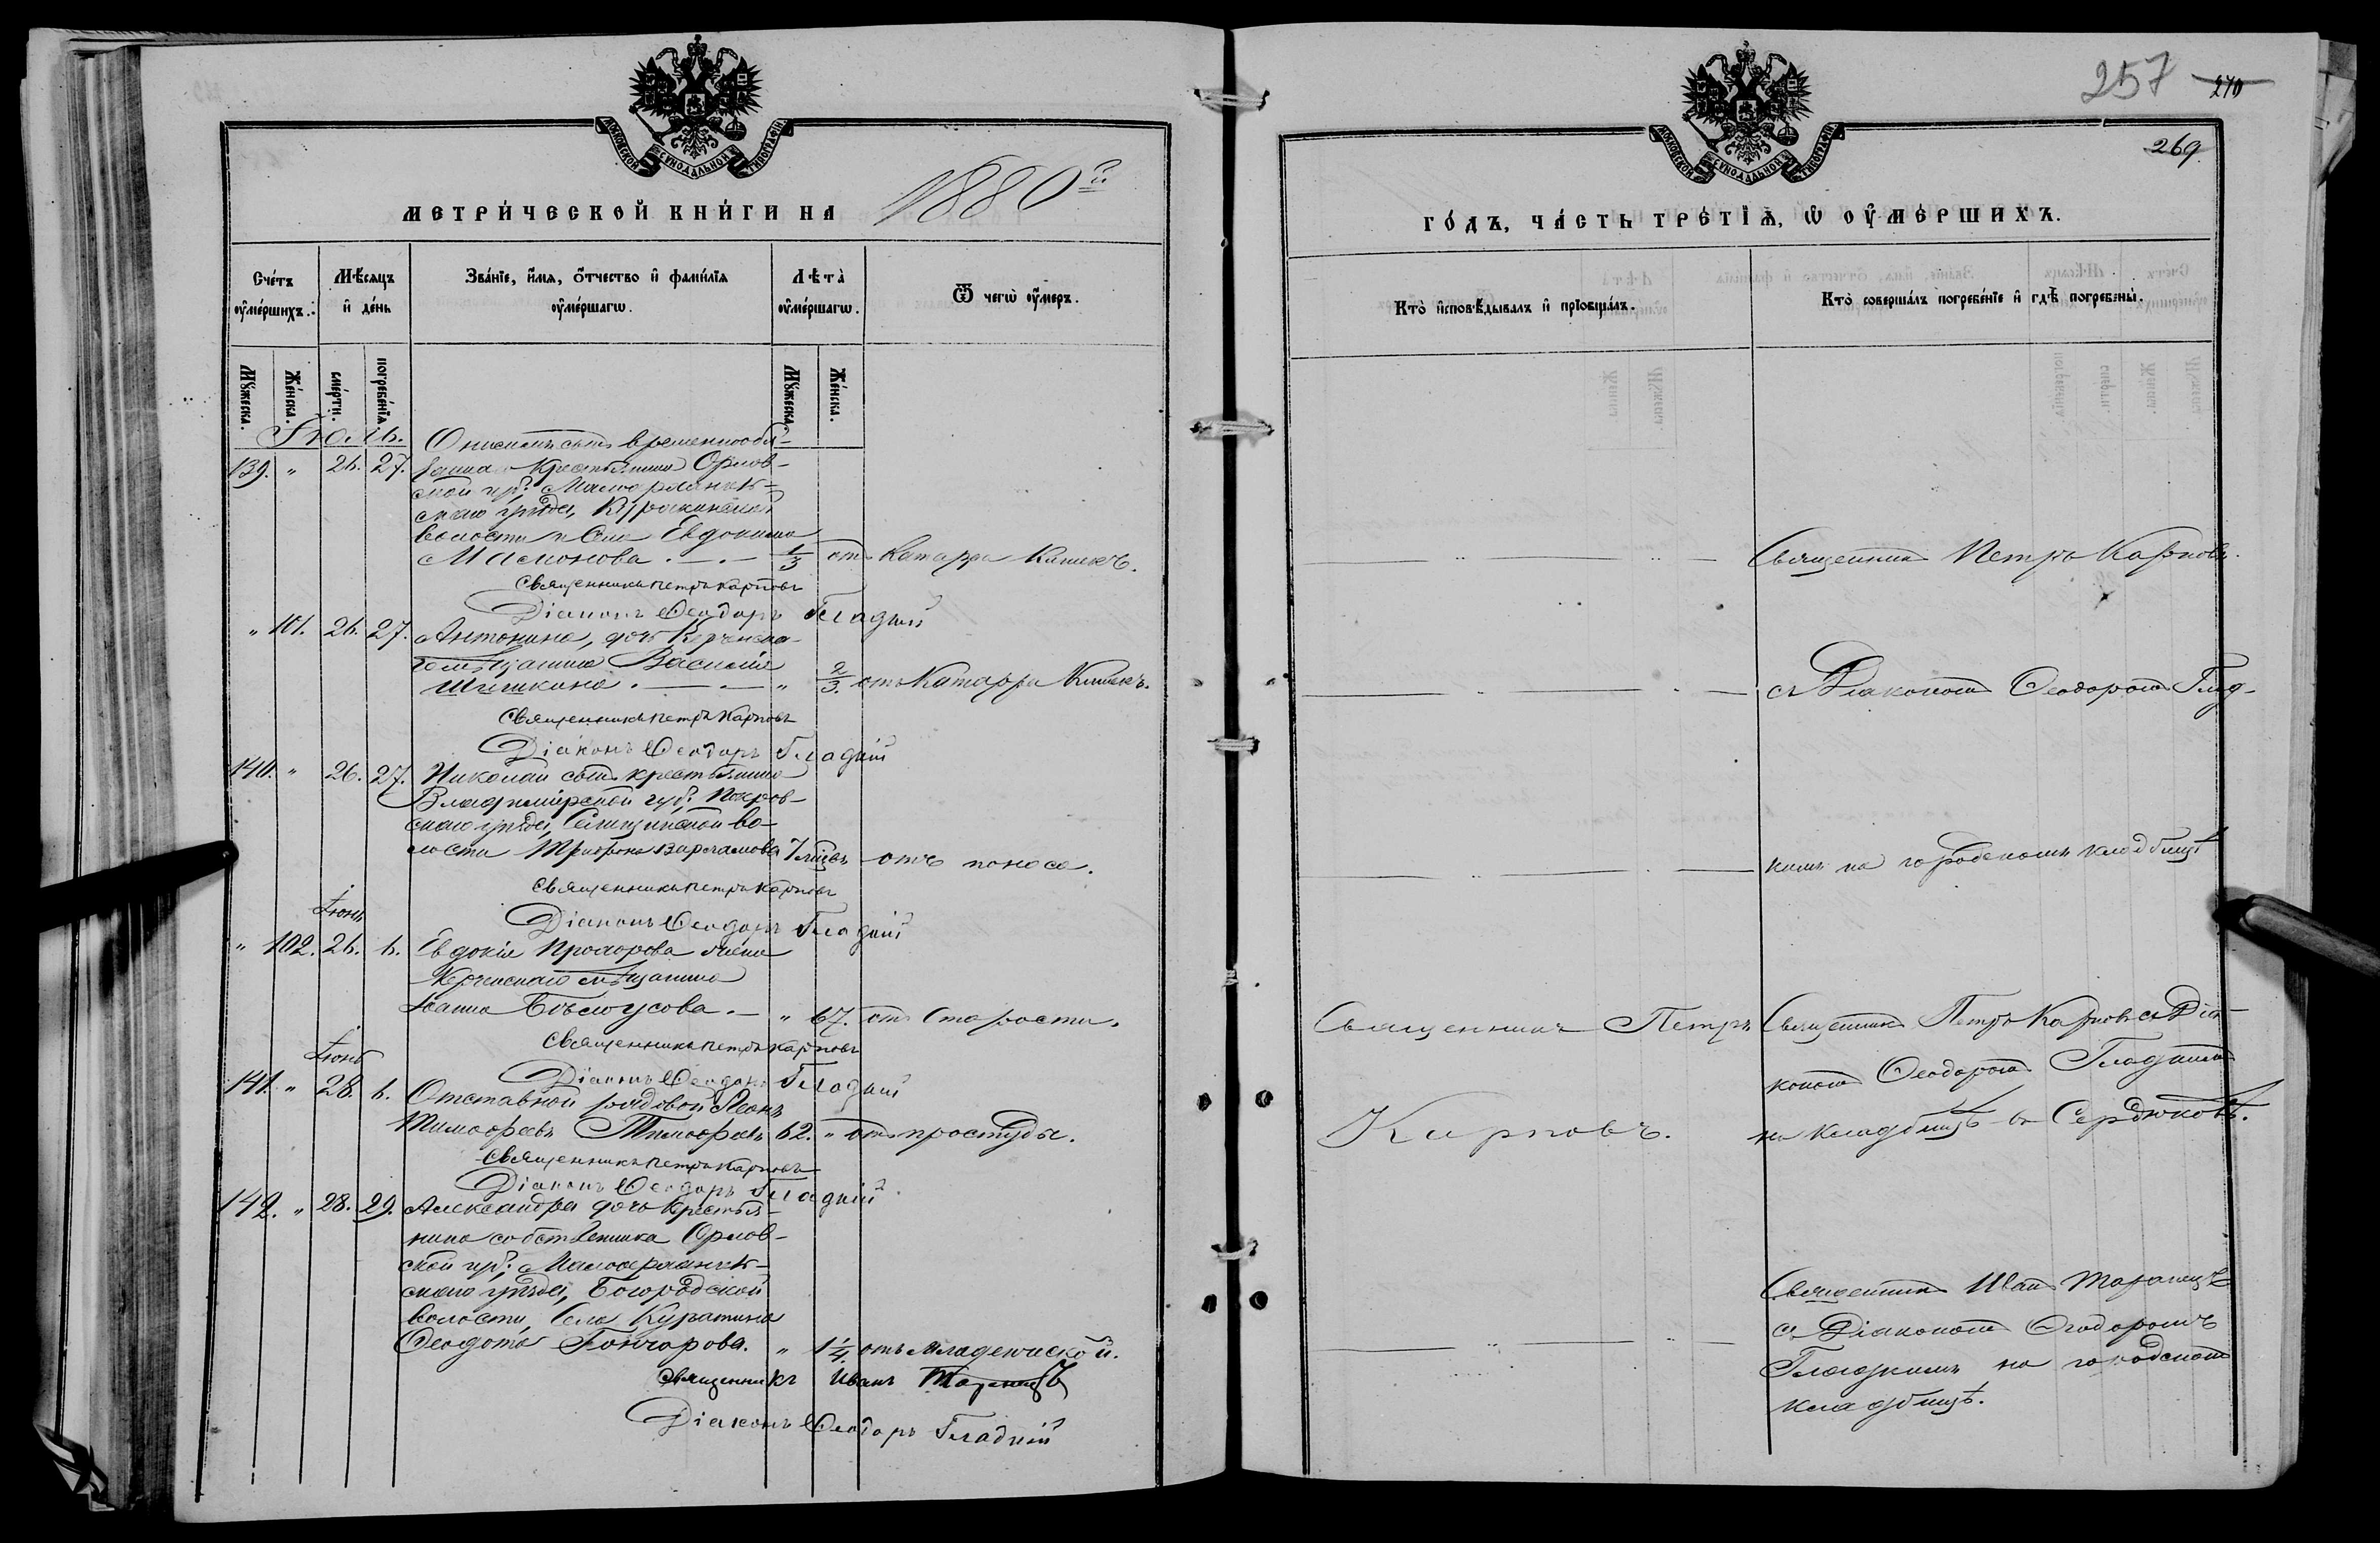 МОСКОВСКОЙ СѴНОДАЛЬНОЙ ТИПОГРАФІИ
МЕТРИ́ЧЕСКОЙ КНИ́ГИ НА 1880й
Сче́тъ ᲂу҆ме́ршихъ.
Мѣ́сяцъ и҆ де́нь
Зва́нїе, и҆́мя, ѻ҆́тчество и҆ фами́лїя ᲂу҆ме́ршагѡ.
Лѣта̀ ᲂу҆ме́ршагѡ.
Ѿ чегѡ̀ ᲂу҆́меръ.
Мꙋ́жеска.
Же́нска.
сме́рти.
погребе́нїя
Мꙋ́жеска.
Же́нска.
Іюль.
Онисимъ сынъ временнооб-
139. " 26. 27. Крестьянина Орлов-
ской губ: Малоархангель-
скаго уѣзда, Куракинской
волости и Села Евдокима
Мамонова . — . — 1/3 отъ Катарра Кишекъ.
Священникъ Петръ Карповъ
Діаконъ Ѳеодоръ Гладкій
" 101. 26. 27. Антонина, дочь Керченска-
го мѣщанина Василія
Шишкина . — . — " 2/3. отъ Катарра Кишекъ.
Священникъ Петръ Карповъ
Діаконъ Ѳеодоръ Гладкій
140. " 26. 27. Николай сынъ крестьянина
Владимірской губ: Покров-
скаго уѣзда, волости Трифона Варламова 7 мѣсяц. отъ поноса.
Священникъ Петръ Карповъ
Діаконъ Ѳеодоръ Гладкій
Іюнь
" 102. 26. 6. Евдокія Прохорова жена
Керченскаго мѣщанина
Іоанна Бѣлоусова. — " 67. отъ Старости.
Священникъ Петръ Карповъ
Діаконъ Ѳеодоръ Гладкій
Іюнь
141. " 28. 6. Отставной рядовой Леонъ
Тимофеевъ Тимофеевъ 62. " отъ простуды.
Священникъ Петръ Карповъ
Діаконъ Ѳеодоръ Гладкій
142. " 28. 29. Александра дочь Крестья-
нина собственника Орлов-
ской губ: Малоархангель-
скаго уѣзда, Богородской
волости, Села Куратина
Ѳеодота Гончарова. " 1 1/4. отъ младенческой.
Священникъ Иванъ Таранецъ
Діаконъ Ѳеодоръ Гладкій
МОСКОВСКОЙ СѴНОДАЛЬНОЙ ТИПОГРАФІИ
257 270
269.
ГО́ДЪ, ЧА́СТЬ ТРЕ́ТЇѦ, Ѡ҆ ОУ҆МЕ́РШИХЪ.
Кто̀ и҆сповѣ́дывалъ и҆ прїѡбща́лъ.
Кто̀ соверша́лъ погребе́нїе и҆ гдѣ̀ погребены̀.
Священникъ Петръ Карповъ
съ Діакономъ Ѳеодоромъ Глад-
кимъ на городскомъ кладбищѣ
Священникъ Петръ
Карповъ.
Священникъ Петръ Карповъ съ Діа-
кономъ Ѳеодоромъ Гладкимъ
на кладбищѣ въ Сердюковѣ.
Священникъ Иванъ Таранецъ
съ Діакономъ Ѳеодоромъ
Гладкимъ на городскомъ
кладбищѣ.